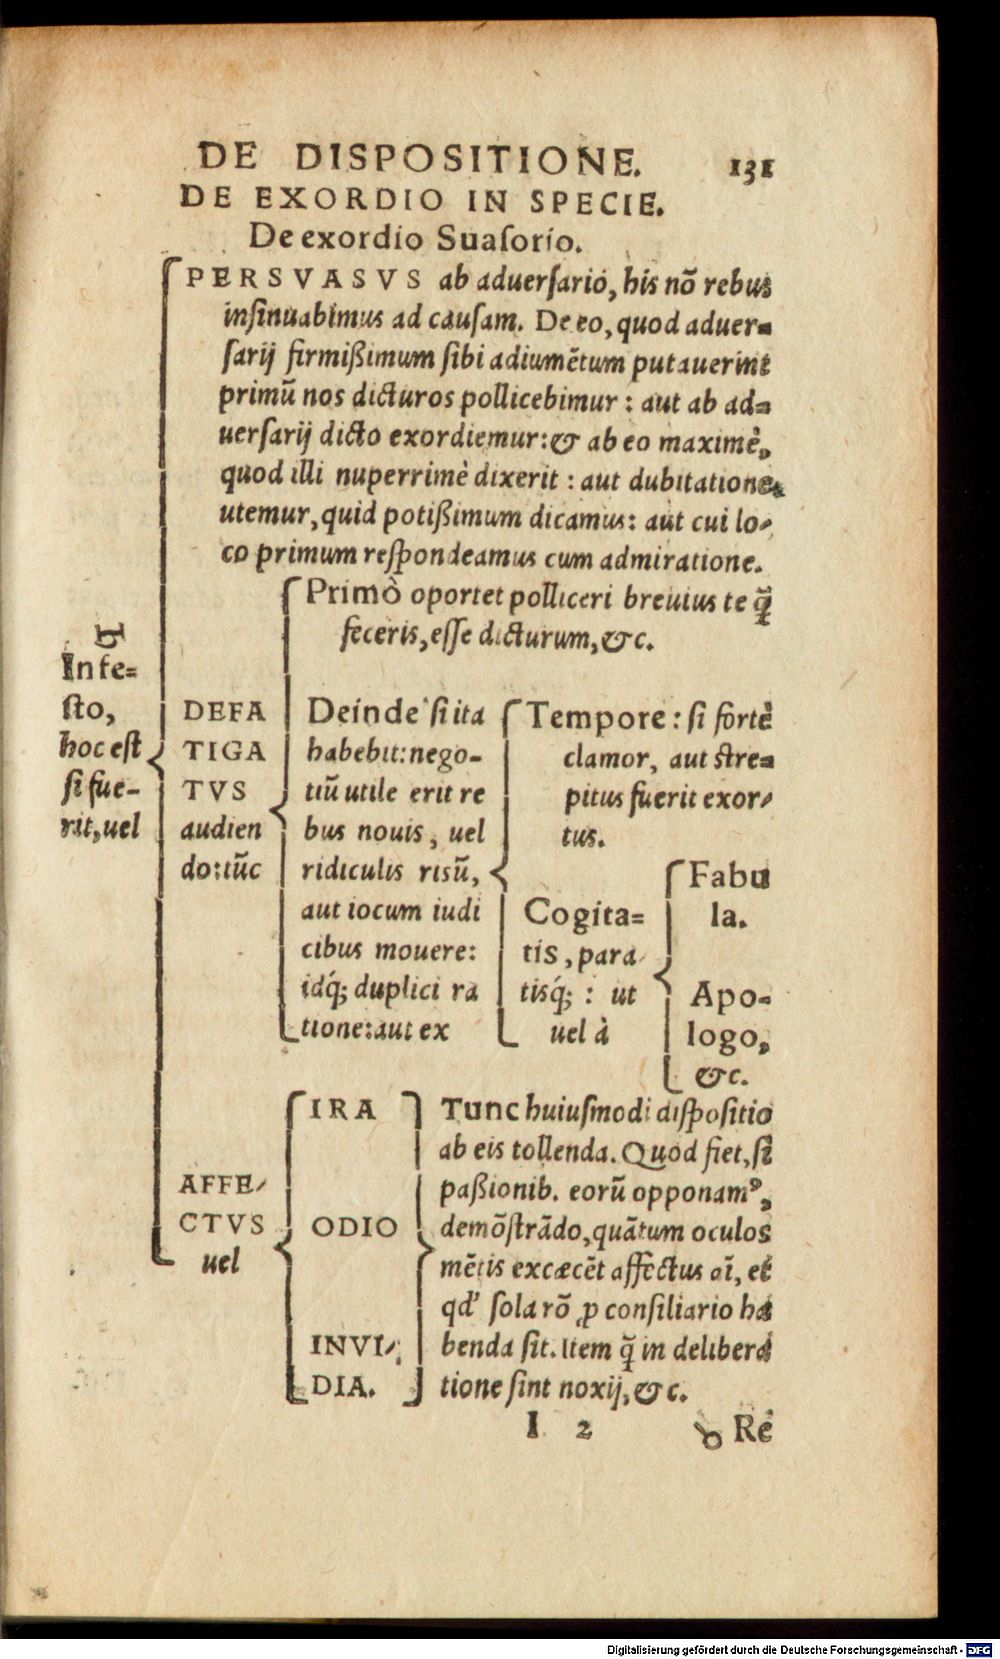 DE DISPOSITIONE. 131
DE EXORDIO IN SPECIE.
De exordio Suaſorio.
PERSVASVS ab aduerſario, his nõ rebus
inſinuabimus ad cauſam. De eo, quod aduer=
ſarij firmißimum ſibi adiumẽtum putauerint
primũ nos dicturos pollicebimur : aut ab ad=
uerſarij dicto exordiemur: & ab eo maximè,
quod illi nuperrimè dixerit : aut dubitatione
utemur, quid potißimum dicamus: aut cui lo-
co primum reſpondeamus cum admiratione.
Infe=
ſto,
hoc eſt
ſi fue-
rit, uel
DEFA
TIGA
TVS
audien
do: tũc
Primò oportet polliceri breuius te q̃
feceris, eſſe dicturum, &c.
Deinde ſi ita
habebit: nego-
tiũ utile erit re
bus nouis, uel
ridiculis risũ,
aut iocum iudi
cibus mouere:
idq́; duplici ra
tione: aut ex
Tempore : ſi fortè
clamor, aut ſtre=
pitus fuerit exor-
tus.
Cogita=
tis, para
tisq́; : ut
uel à
Fabu
la.
Apo-
logo,
&c.
AFFE-
CTVS
uel
IRA
ODIO
INVI-
DIA.
Tunc huiuſmodi diſpoſitio
ab eis tollenda. Quod fiet, ſi
paßionib. eorũ opponamꝰ,
demõſtrãdo, quãtum oculos
mẽtis excæcẽt affectus aĩ, et
qd' ſola rõ ꝓ conſiliario ha
benda ſit. Item q̃ in delibera
tione ſint noxij, &c.
I 2 Re
Digitalisierung gefördert durch die Deutsche Forschungsgemeinschaft - DFG